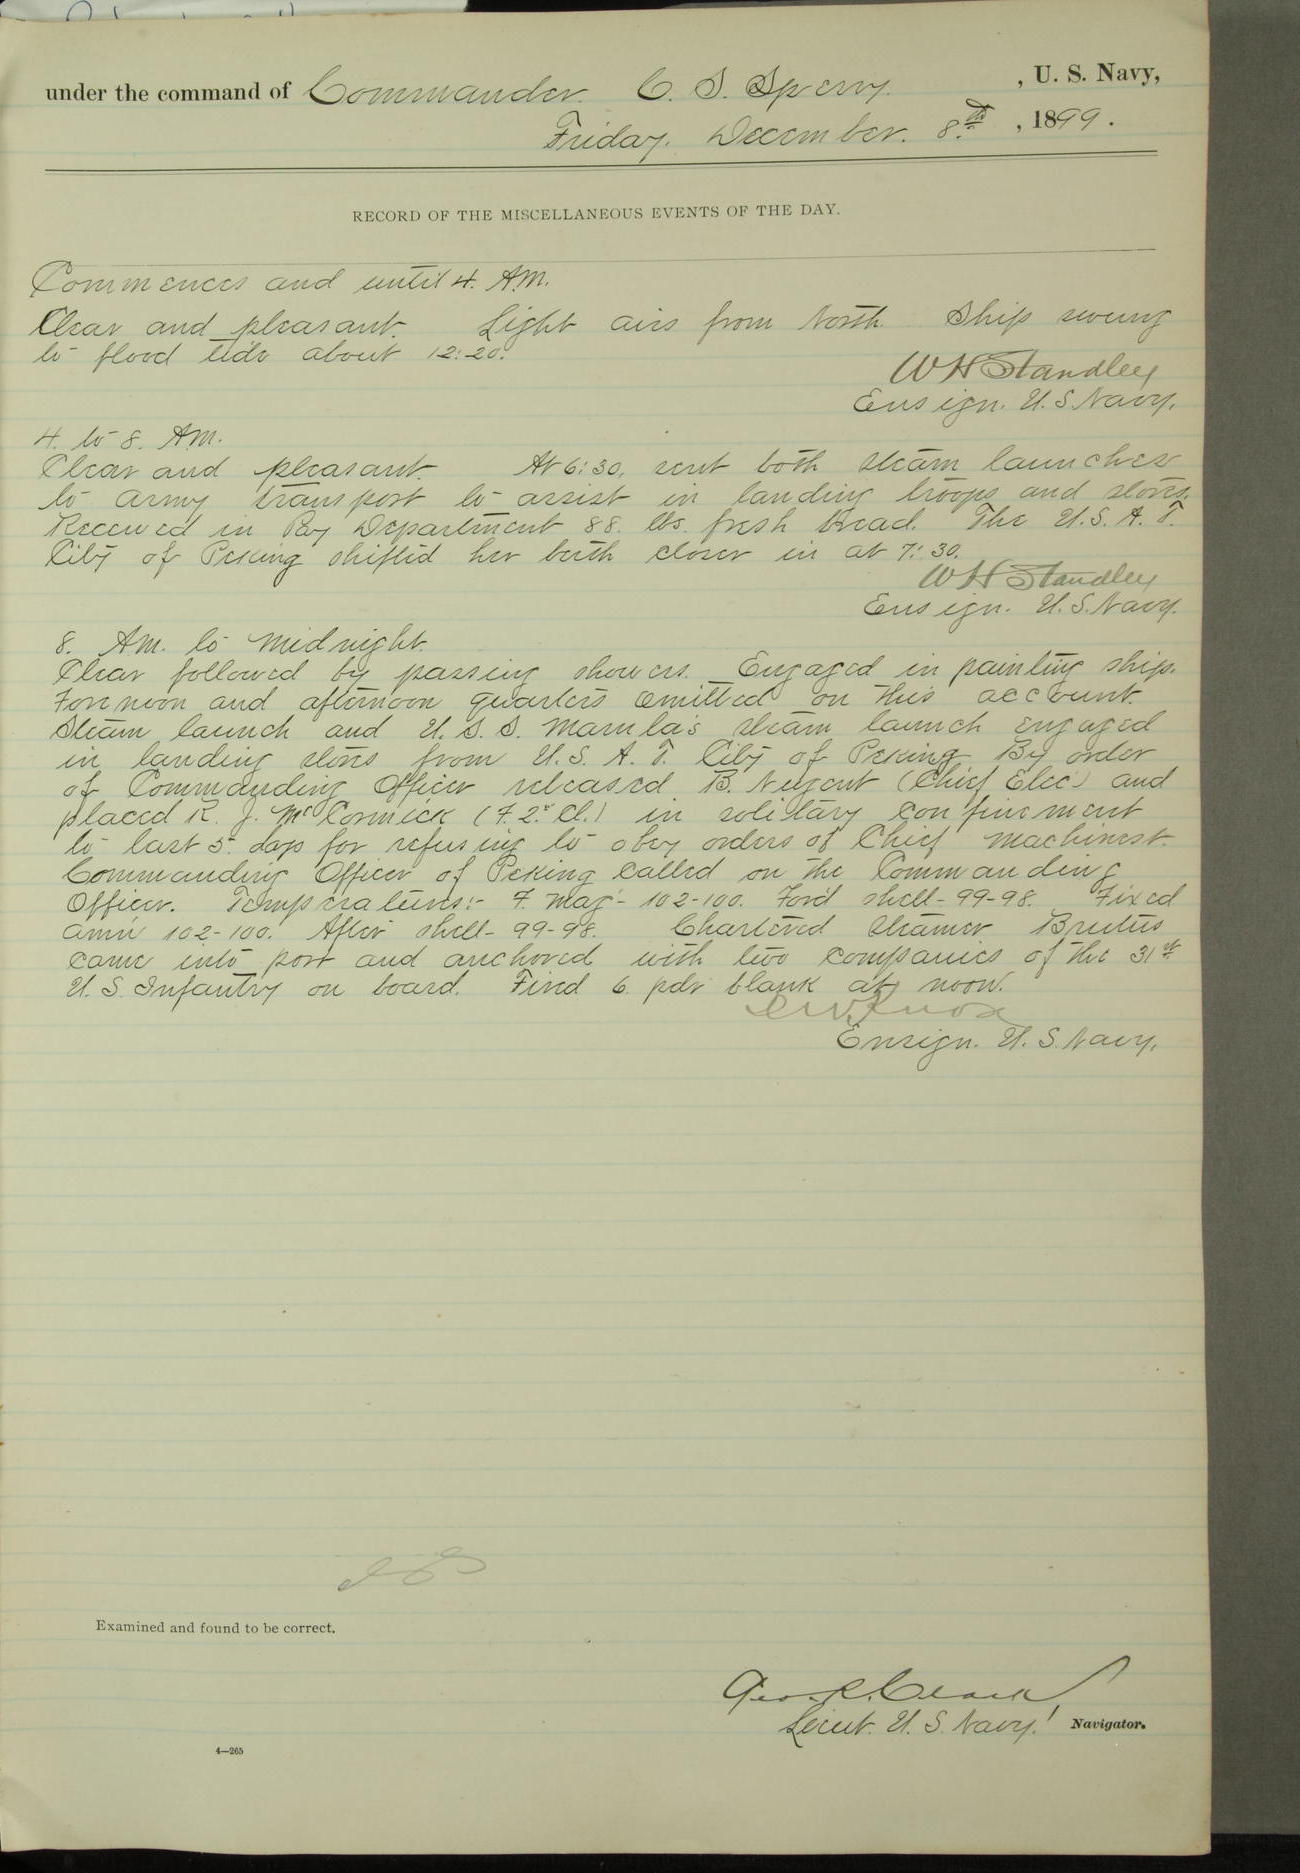 under the command of Commander. C. S. Sperry. , U. S. Navy,
Friday. December. 8.th , 1899.
RECORD OF THE MISCELLANEOUS EVENTS OF THE DAY.
Commences and until 4. A.M.
Clear and pleasant. Light airs from North. Ship swung
to flood tide about 12:20.
W H Standley
Ensign. U. S. Navy.
4. to 8. A.M.
Clear and pleasant. At 6:30, sent both steam launches
to army transport to assist in landing troops and stores.
Received in Pay Department 88. lbs. fresh bread. The U. S. A. T.
City of Peking shifted her berth closer in at 7:30.
W H Standley
Ensign. U. S. Navy.
8. A.M. to Midnight.
Clear followed by passing showers. Engaged in painting ship.
Forenoon and afternoon quarters omitted on this account.
Steam launch and U. S. S. Manila's steam launch engaged
in landing stores from U. S. A. T. City of Peking. By order
of Commanding Officer released B. Nugent (Chief Elec.) and
placed R. J. McCormick (F. 2" Cl.) in solitary confinement
to last 5. days for refusing to obey orders of Chief Machinest.
Commanding Officer of Peking called on the Commanding
Officer. Temperatures:- F. Mag- 102-100. For'd shell- 99-98. Fixed
amn 102-100. After shell- 99-98. Chartered steamer Brutus
came into port and anchored with two companies of the 31st
U. S. Infantry on board. Fired 6. pdr blank at noon.
D W. Knox
Ensign. U. S. Navy.
Examined and found to be correct.
Geo. R. Clark
Lieut. U. S. Navy. Navigator.
4—265